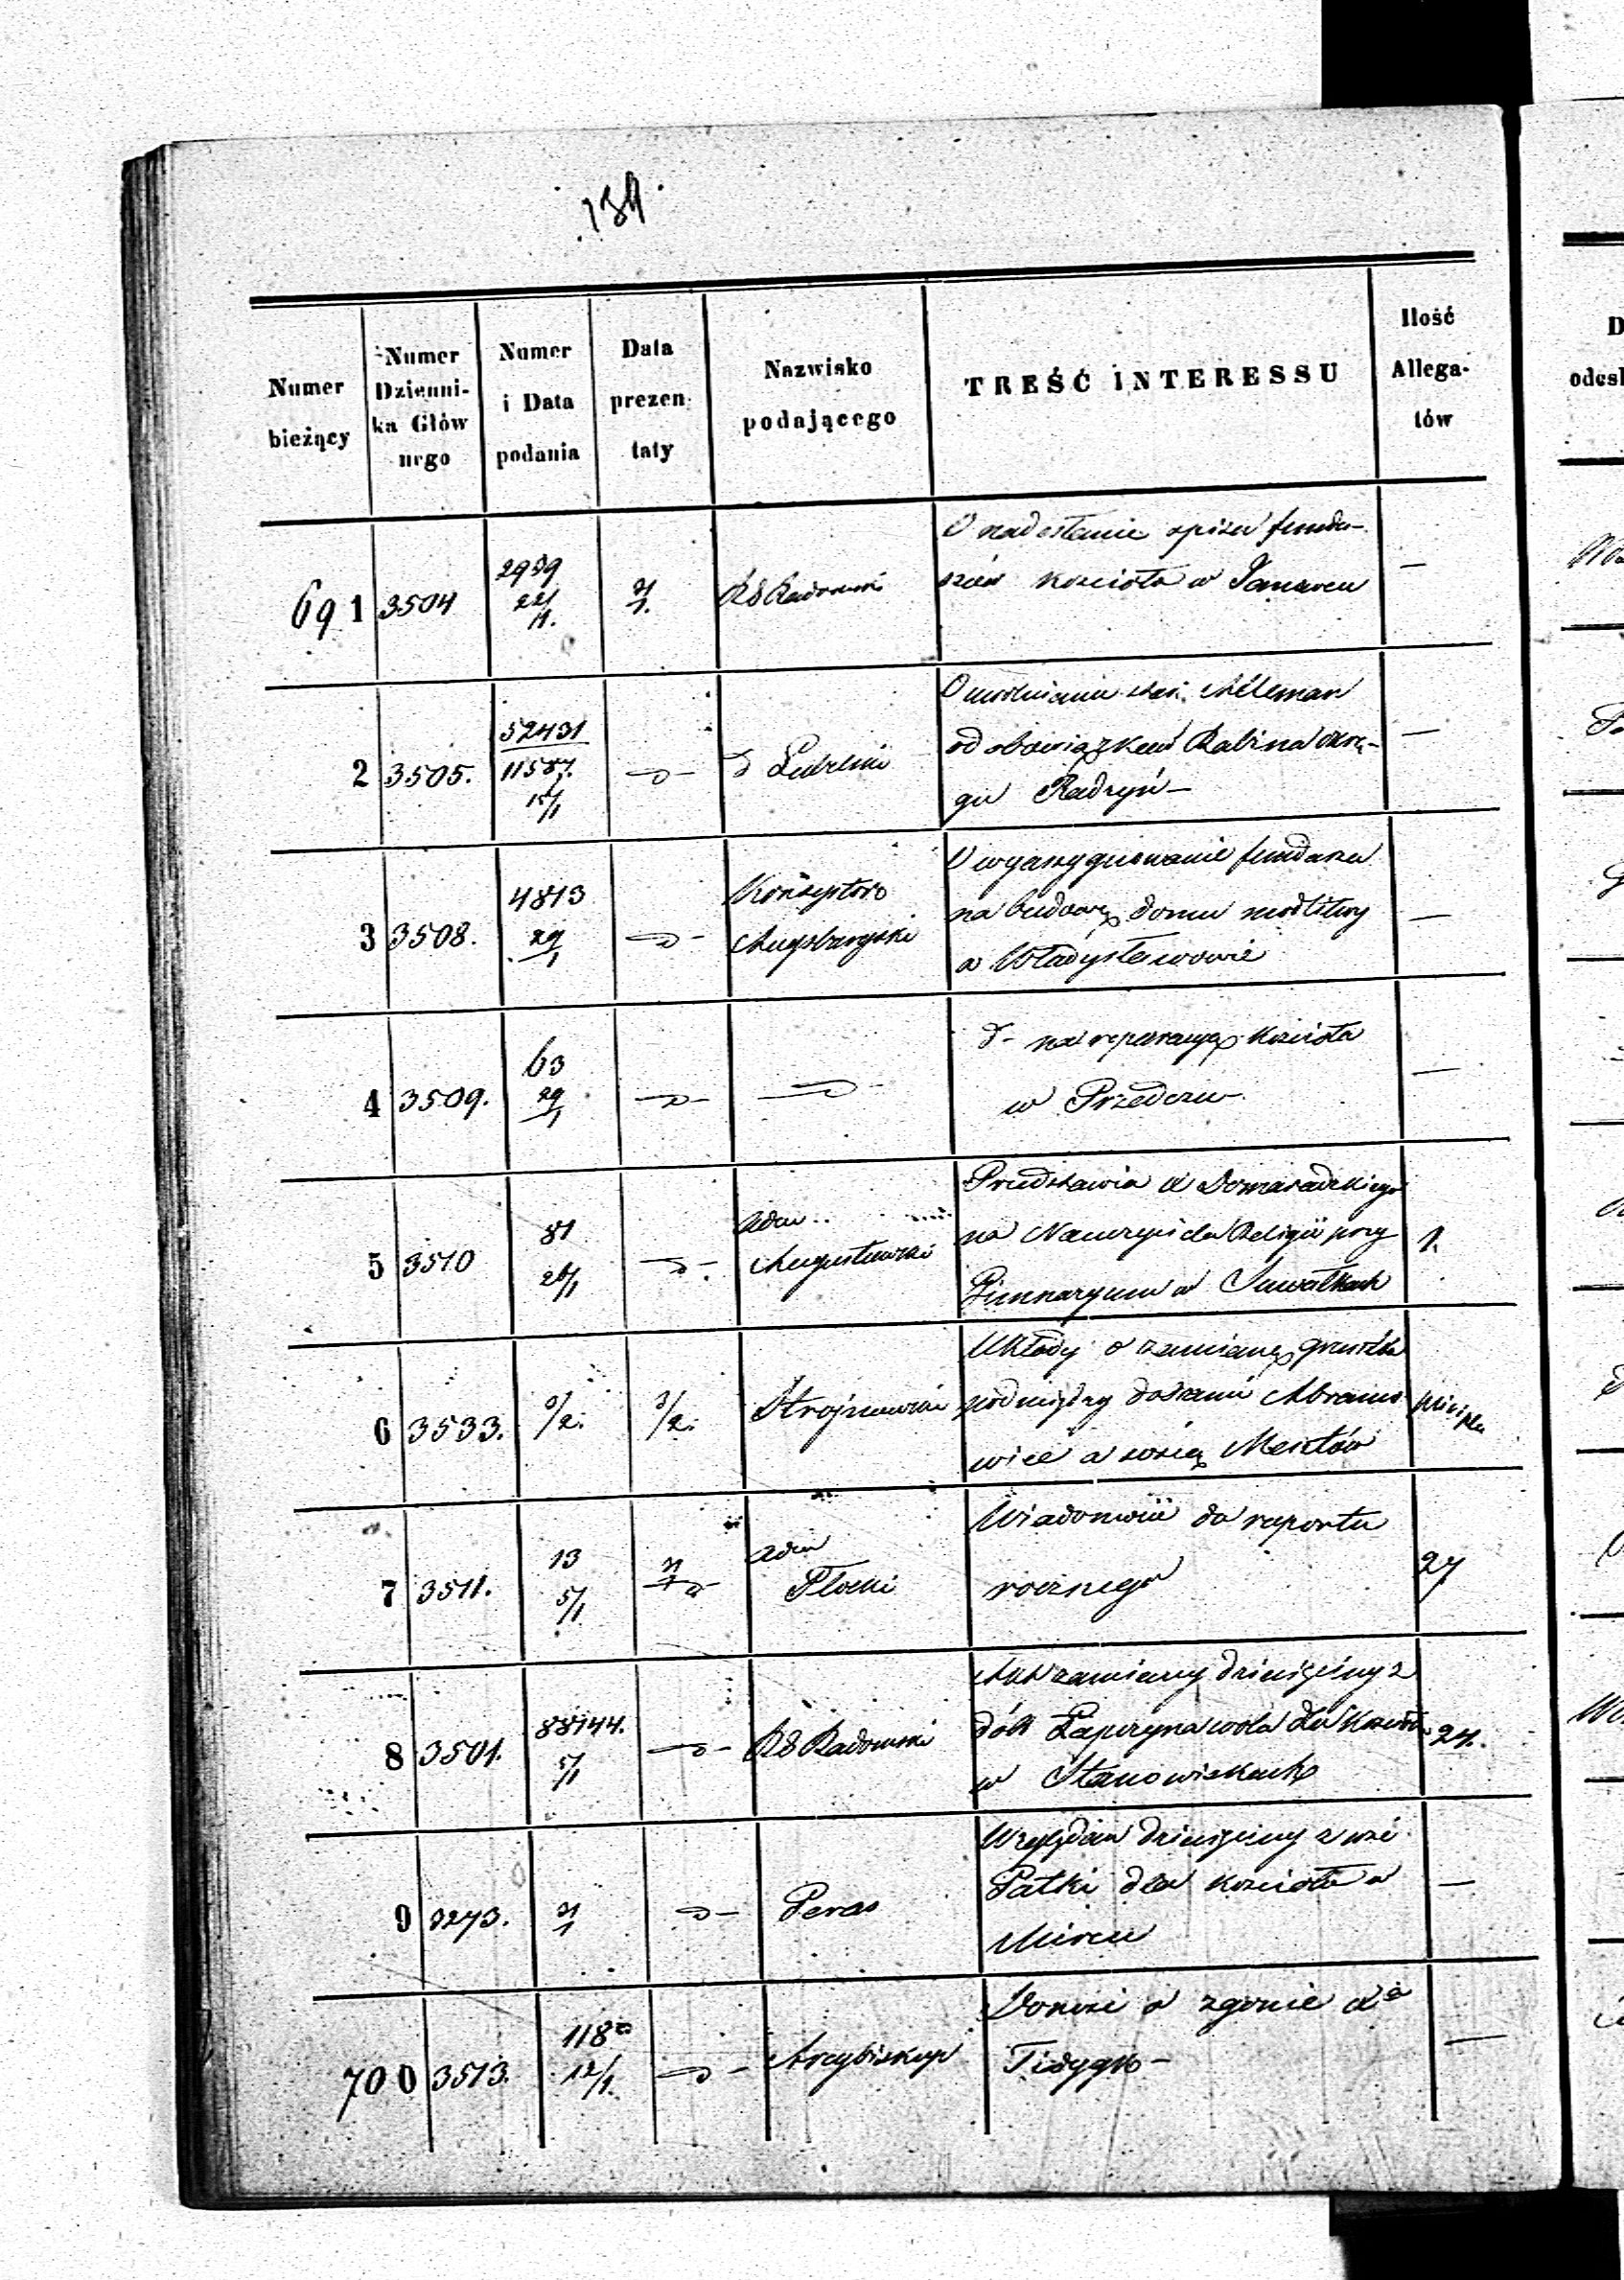 134.
Numer bieżący
Numer Dzienni- ka Głów nego
Numer i Data podania
Data prezen- taty
Nazwisko podającego
TREŚĆ INTERESSU
Ilość Allega- tów
691 3504 2939 22/1. 31/1. RG Radomski
O nadesłanie spisu fundu-
szów kościoła w Janowcu —
2 3505. 52431 11587. 15/1 —d— d Lubelski
O uwolnienie star.
od obowiązków Rabina okrę-
gu Radzyń — —
3 3508. 4813 29/1 —d— Konsystorz
Augsburgski
O wyassygnowanie funduszu
na budowę domu modlitwy
w Władysławowie —
4 3509. 63 29/1 —d— —d—
d- na reparacyę kościoła
w Przedczu —
5 3510 81 26/1 —d— Adm
Augustowski
Przedstawia X Domaradzkiego
na Nauczyciela Religii przy
Gimnazyum w Suwałkach 1.
6 3533. 3/2. 3/2. Strojnowski
Układy o zamianę gruntu
pomiędzy dobrami Abramo
wice a wsią Mentów
7 3511. 13 5/1 31/1 —d— Adm
Płocki
Wiadomości do raportu
rocznego 27
8 3501. 88144. 5/1 —d— RG Radomski
Akt zamiany dziesięciny z
dóbr Łapczyna wola dla kościoła
w Stanowiskach 24.
9 3273. 31/1 —d— Peras
Względem dziesięciny z wsi
Pałki dla kościoła w
Mircu —
700 3513. 118 12/1. —d— Arcybiskup
Donosi o zgonie Xa
—
D
odesł